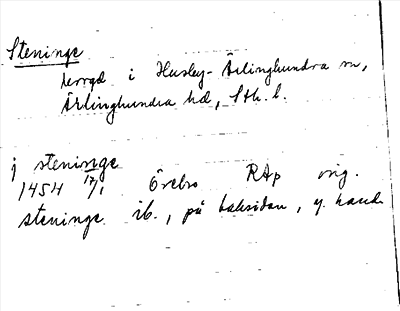 Steninge
herrgd i Husby-Ärlinghundra sn,
Ärlinghundra hd, Sth. l.
j steninge
1454 17/1 Örebro RAp orig.
steninge ib., på baksidan, y. hand